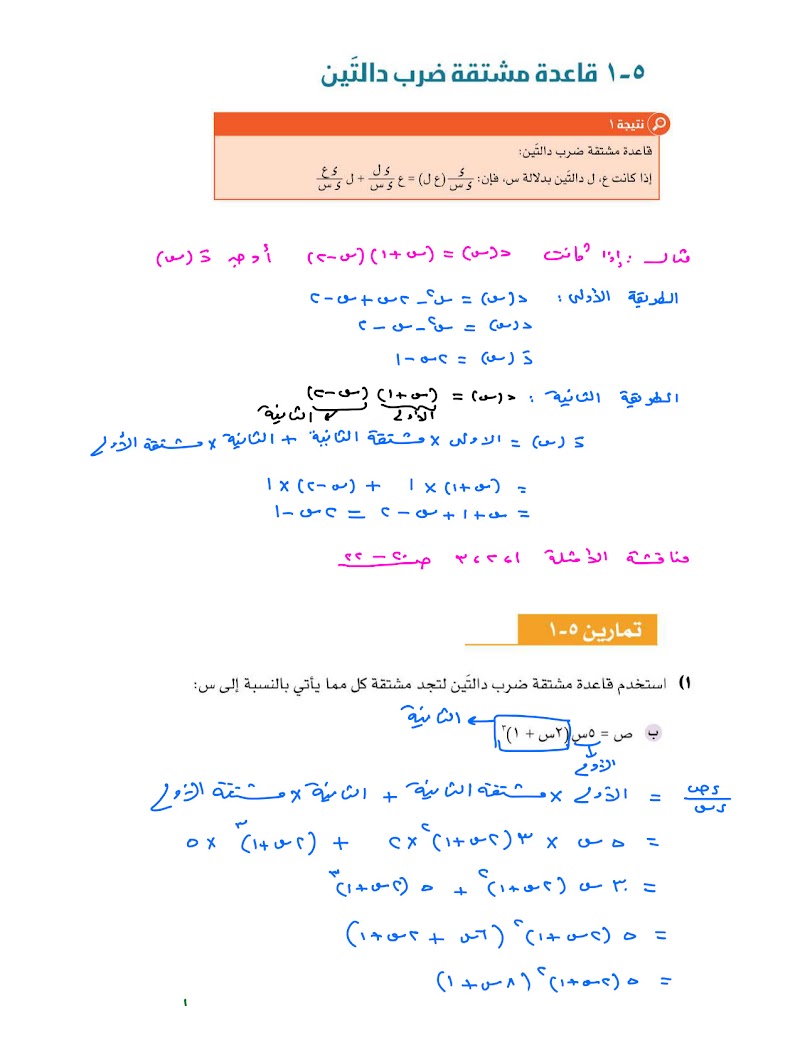 ٥-١ قاعدة مشتقة ضرب دالتَين
نتيجة ١
قاعدة مشتقة ضرب دالتَين:
إذا كانت ع، ل دالتَين بدلالة س، فإن: د/دس (ع ل) = ع دل/دس + ل دع/دس
مثال: إذا كانت د(س) = (س+١)(س-٢) أوجد دَ(س)
الطريقة الأولى: د(س) = س² - ٢س + س - ٢
د(س) = س² - س - ٢
دَ(س) = ٢س - ١
الطريقة الثانية: د(س) = (س+١)(س-٢)
الأولى الثانية
دَ(س) = الاولى × مشتقة الثانية + الثانية × مشتقة الأولى
= (س+١) × ١ + (س-٢) × ١
= س + ١ + س - ٢ = ٢س - ١
مناقشة الأمثلة ١،٢،٣ ص ٢٠ - ٢٢
تمارين ٥-١
١) استخدم قاعدة مشتقة ضرب دالتَين لتجد مشتقة كل مما يأتي بالنسبة إلى س:
الثانية
ب ص = ٥س(٢س + ١)³
الأولى
دص/دس = الأولى × مشتقة الثانية + الثانية × مشتقة الأولى
= ٥س × ٣(٢س+١)² × ٢ + (٢س+١)³ × ٥
= ٣٠س (٢س+١)² + ٥(٢س+١)³
= ٥(٢س+١)² (٦س + ٢س + ١)
= ٥(٢س+١)² (٨س + ١)
١